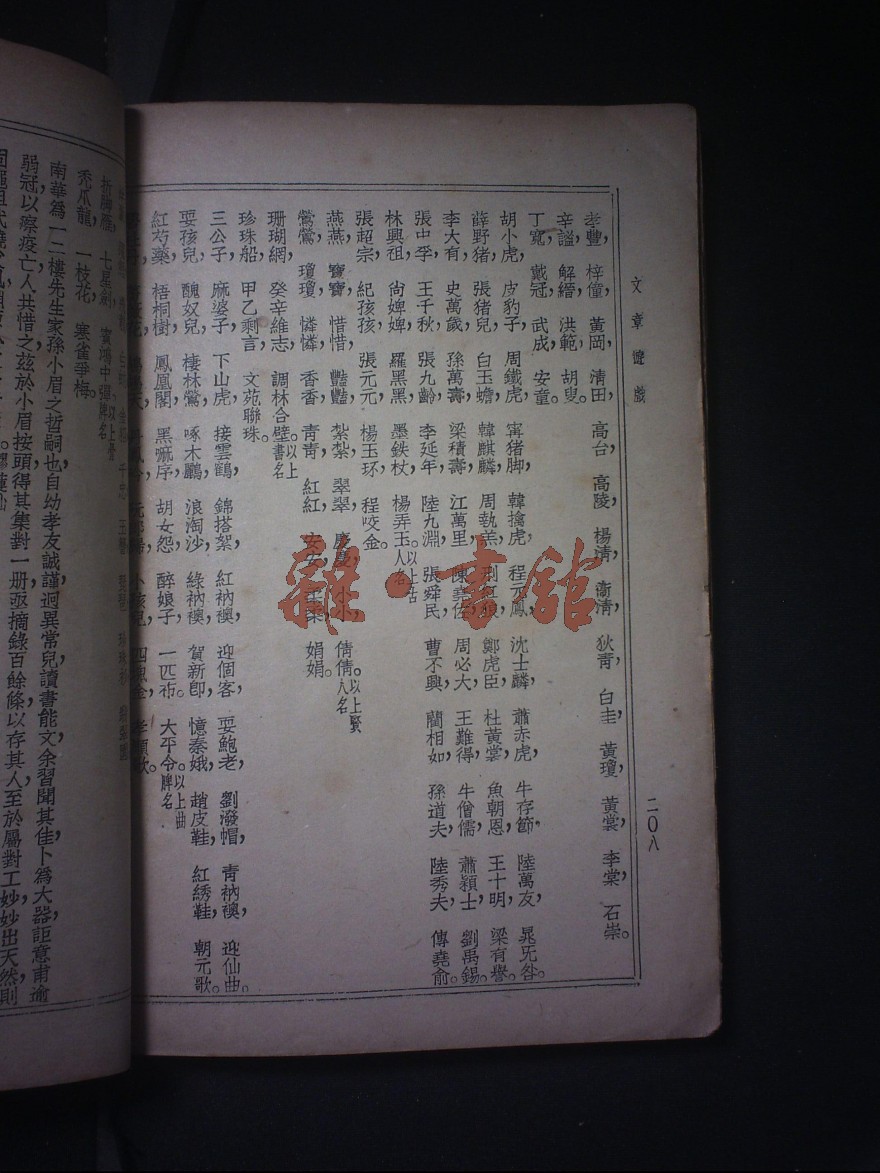 文章遊戲
二〇八
孝豐，梓僮，黃岡，清田，高台，高陵，楊清，衞清，狄靑，白圭，黃瓊，黃裳，李棠，石崇。
辛謐，解縉，洪範，胡叟。
丁寬，戴冠，武成，安童。
胡小虎，皮豹子，周鐵虎，寗猪脚，韓擒虎，程元鳳，沈士麟，蕭赤虎，牛存節，陸萬友，晁旡咎，
薛野猪，張猪兒，白玉蟾，韓麒麟，周執羔，鄭虎臣，杜黃裳，魚朝恩，王十明，梁有譽。
李大有，史萬歲，孫萬壽，梁積壽，江萬里，陳堯佐，周必大，王難得，牛僧儒，蕭穎士，劉禹錫。
張中孚，王千秋，張九齡，李延年，陸九淵，張舜民，曹不興，藺相如，孫道夫，陸秀夫，傳堯俞。
林興祖，尚婢婢，羅黑黑，墨鉄杖，楊弄玉。以上古人名
張超宗，紀孩孩，張元元，楊玉环，程咬金。
燕燕，寶寶，惜惜，豔豔，紮紮，翠翠，慶慶，小小，倩倩。以上緊人名
鶯鶯，瓊瓊，憐憐，香香，靑靑，紅紅，安安，娟娟。
珊瑚網，癸辛維志，調林合璧。以上書名
珍珠船，甲乙剩言，文苑聯珠。
三公子，麻婆子，下山虎，接雲鶴，錦搭絮，紅衲襖，迎個客，耍鮑老，劉潑帽，靑衲襖，迎仙曲。
耍孩兒，醜奴兒，棲林鶯，啄木鸝，浪淘沙，綠衲襖，賀新郎，憶秦娥，趙皮鞋，紅綉鞋，朝元歌。
紅芍藥，梧桐樹，鳳凰閣，黑嘛序，胡女怨，醉娘子，一匹布，大平令。以上曲牌名
折脚雁，七星劍，賓鴻中彈
禿爪龍，一枝花，寒雀爭梅。
南華爲一二樓先生家孫小眉之哲嗣也自幼孝友誠謹迥異常兒讀書能文余習聞其佳卜爲大器詎意甫逾
弱冠以瘵疫亡人共惜之玆於小眉按頭得其集對一册亟摘錄百餘條以存其人至於屬對工妙妙出天然則